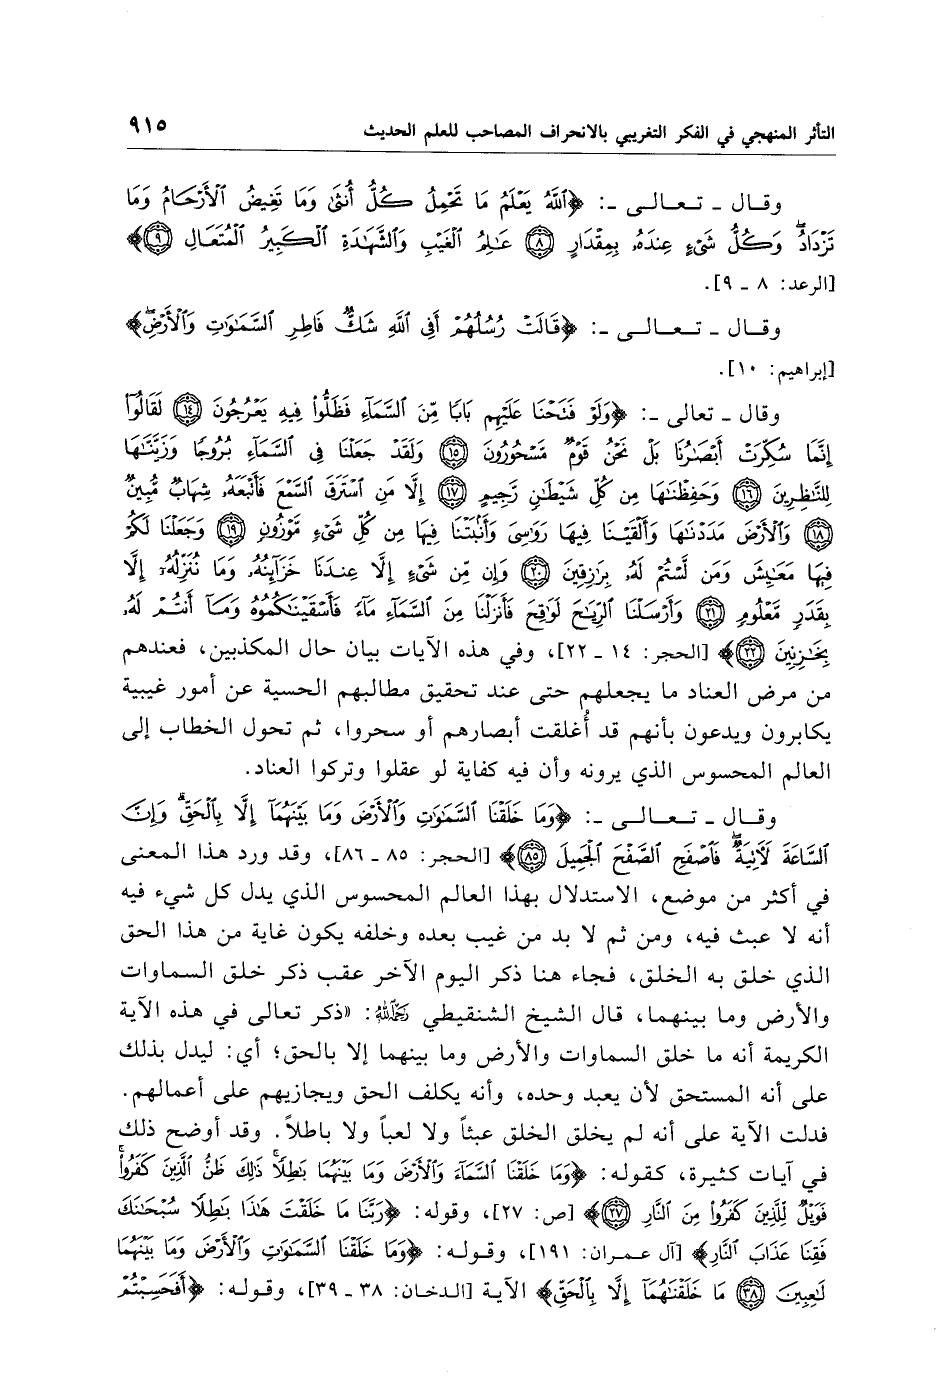 التأثر المنهجي في الفكر التغريبي بالانحراف المصاحب للعلم الحديث ٩١٥
وقال ـ تعالى ـ: ﴿ٱللَّهُ يَعْلَمُ مَا تَحْمِلُ كُلُّ أُنثَىٰ وَمَا تَغِيضُ ٱلْأَرْحَامُ وَمَا
تَزْدَادُۖ وَكُلُّ شَىْءٍ عِندَهُۥ بِمِقْدَارٍ ﴿٨﴾ عَـٰلِمُ ٱلْغَيْبِ وَٱلشَّهَـٰدَةِ ٱلْكَبِيرُ ٱلْمُتَعَالِ ﴿٩﴾﴾
[الرعد: ٨ ـ ٩].
وقال ـ تعالى ـ: ﴿قَالَتْ رُسُلُهُمْ أَفِى ٱللَّهِ شَكٌّ فَاطِرِ ٱلسَّمَـٰوَٰتِ وَٱلْأَرْضِۖ﴾
[إبراهيم: ١٠].
وقال ـ تعالى ـ: ﴿وَلَوْ فَتَحْنَا عَلَيْهِم بَابًا مِّنَ ٱلسَّمَآءِ فَظَلُّوا۟ فِيهِ يَعْرُجُونَ ﴿١٤﴾ لَقَالُوٓا۟
إِنَّمَا سُكِّرَتْ أَبْصَـٰرُنَا بَلْ نَحْنُ قَوْمٌ مَّسْحُورُونَ ﴿١٥﴾ وَلَقَدْ جَعَلْنَا فِى ٱلسَّمَآءِ بُرُوجًا وَزَيَّنَّـٰهَا
لِلنَّـٰظِرِينَ ﴿١٦﴾ وَحَفِظْنَـٰهَا مِن كُلِّ شَيْطَـٰنٍ رَّجِيمٍ ﴿١٧﴾ إِلَّا مَنِ ٱسْتَرَقَ ٱلسَّمْعَ فَأَتْبَعَهُۥ شِهَابٌ مُّبِينٌ
﴿١٨﴾ وَٱلْأَرْضَ مَدَدْنَـٰهَا وَأَلْقَيْنَا فِيهَا رَوَٰسِىَ وَأَنۢبَتْنَا فِيهَا مِن كُلِّ شَىْءٍ مَّوْزُونٍ ﴿١٩﴾ وَجَعَلْنَا لَكُمْ
فِيهَا مَعَـٰيِشَ وَمَن لَّسْتُمْ لَهُۥ بِرَٰزِقِينَ ﴿٢٠﴾ وَإِن مِّن شَىْءٍ إِلَّا عِندَنَا خَزَآئِنُهُۥ وَمَا نُنَزِّلُهُۥٓ إِلَّا
بِقَدَرٍ مَّعْلُومٍ ﴿٢١﴾ وَأَرْسَلْنَا ٱلرِّيَـٰحَ لَوَٰقِحَ فَأَنزَلْنَا مِنَ ٱلسَّمَآءِ مَآءً فَأَسْقَيْنَـٰكُمُوهُ وَمَآ أَنتُمْ لَهُۥ
بِخَـٰزِنِينَ ﴿٢٢﴾﴾ [الحجر: ١٤ ـ ٢٢]، وفي هذه الآيات بيان حال المكذبين، فعندهم
من مرض العناد ما يجعلهم حتى عند تحقيق مطالبهم الحسية عن أمور غيبية
يكابرون ويدعون بأنهم قد أُغلقت أبصارهم أو سحروا، ثم تحول الخطاب إلى
العالم المحسوس الذي يرونه وأن فيه كفاية لو عقلوا وتركوا العناد.
وقال ـ تعالى ـ: ﴿وَمَا خَلَقْنَا ٱلسَّمَـٰوَٰتِ وَٱلْأَرْضَ وَمَا بَيْنَهُمَآ إِلَّا بِٱلْحَقِّۗ وَإِنَّ
ٱلسَّاعَةَ لَـَٔاتِيَةٌۖ فَٱصْفَحِ ٱلصَّفْحَ ٱلْجَمِيلَ ﴿٨٥﴾﴾ [الحجر: ٨٥ ـ ٨٦]، وقد ورد هذا المعنى
في أكثر من موضع، الاستدلال بهذا العالم المحسوس الذي يدل كل شيء فيه
أنه لا عبث فيه، ومن ثم لا بد من غيب بعده وخلفه يكون غاية من هذا الحق
الذي خلق به الخلق، فجاء هنا ذكر اليوم الآخر عقب ذكر خلق السماوات
والأرض وما بينهما، قال الشيخ الشنقيطي رحمه الله: «ذكر تعالى في هذه الآية
الكريمة أنه ما خلق السماوات والأرض وما بينهما إلا بالحق؛ أي: ليدل بذلك
على أنه المستحق لأن يعبد وحده، وأنه يكلف الحق ويجازيهم على أعمالهم.
فدلت الآية على أنه لم يخلق الخلق عبثاً ولا لعباً ولا باطلاً. وقد أوضح ذلك
في آيات كثيرة، كقوله: ﴿وَمَا خَلَقْنَا ٱلسَّمَآءَ وَٱلْأَرْضَ وَمَا بَيْنَهُمَا بَـٰطِلًاۚ ذَٰلِكَ ظَنُّ ٱلَّذِينَ كَفَرُوا۟ۚ
فَوَيْلٌ لِّلَّذِينَ كَفَرُوا۟ مِنَ ٱلنَّارِ ﴿٢٧﴾﴾ [ص: ٢٧]، وقوله: ﴿رَبَّنَا مَا خَلَقْتَ هَـٰذَا بَـٰطِلًا سُبْحَـٰنَكَ
فَقِنَا عَذَابَ ٱلنَّارِ﴾ [آل عمران: ١٩١]، وقوله: ﴿وَمَا خَلَقْنَا ٱلسَّمَـٰوَٰتِ وَٱلْأَرْضَ وَمَا بَيْنَهُمَا
لَـٰعِبِينَ ﴿٣٨﴾ مَا خَلَقْنَـٰهُمَآ إِلَّا بِٱلْحَقِّ﴾ الآية [الدخان: ٣٨ ـ ٣٩]، وقوله: ﴿أَفَحَسِبْتُمْ